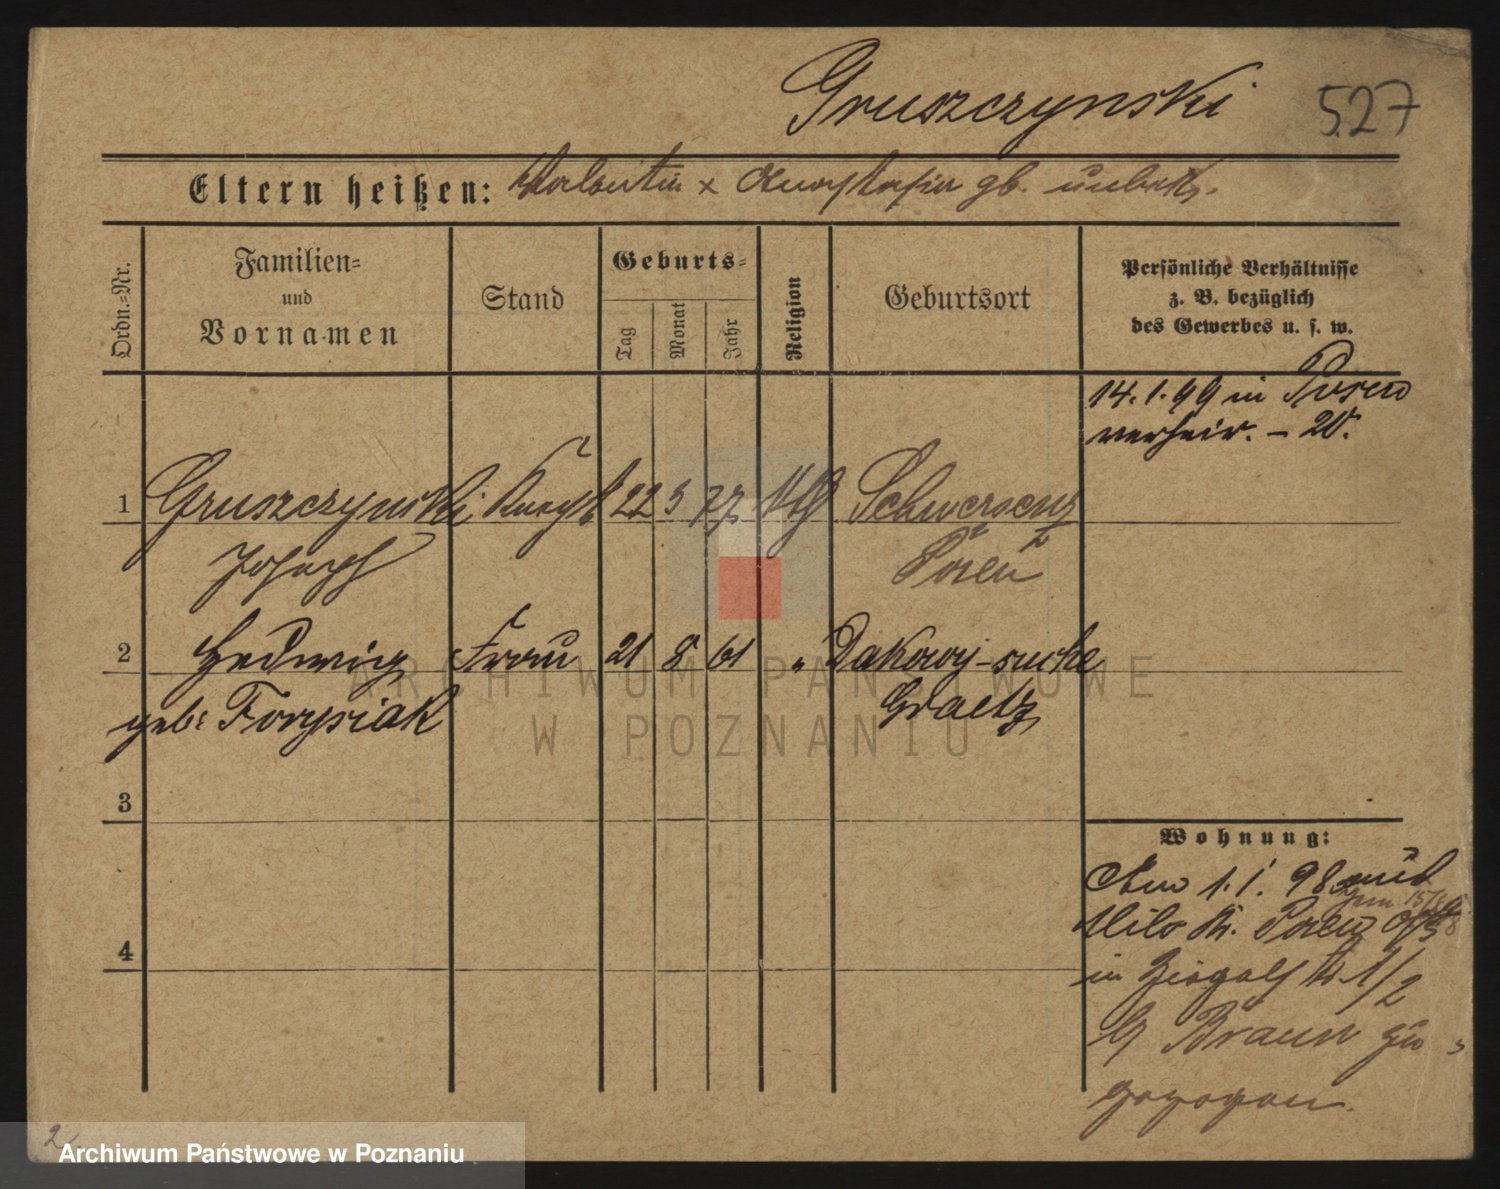 Gruszczynski 527
Eltern heißen: Valentin x Anastasia gb. unbek.
Ordn.=Nr.
Familien=
und
Vornamen
Stand
Geburts=
Tag
Monat
Jahr
Religion
Geburtsort
Persönliche Verhältnisse
z. B. bezüglich
des Gewerbes u. s. w.
14.1.99 in Posen
verheir. – 20.
1 Gruszczynski Knecht 22 5 77 kth Schwersenz
Joseph Posen
2 Hedwig Frau 21 8 61 " Dakowy-suche
geb: Forysiak Graetz
3
4
Wohnung:
Am 1.1.98 mit
Kr. Posen
in
Braun zu=
gezogen.
2
ARCHIWUM PAŃSTWOWE
W POZNANIU
Archiwum Państwowe w Poznaniu